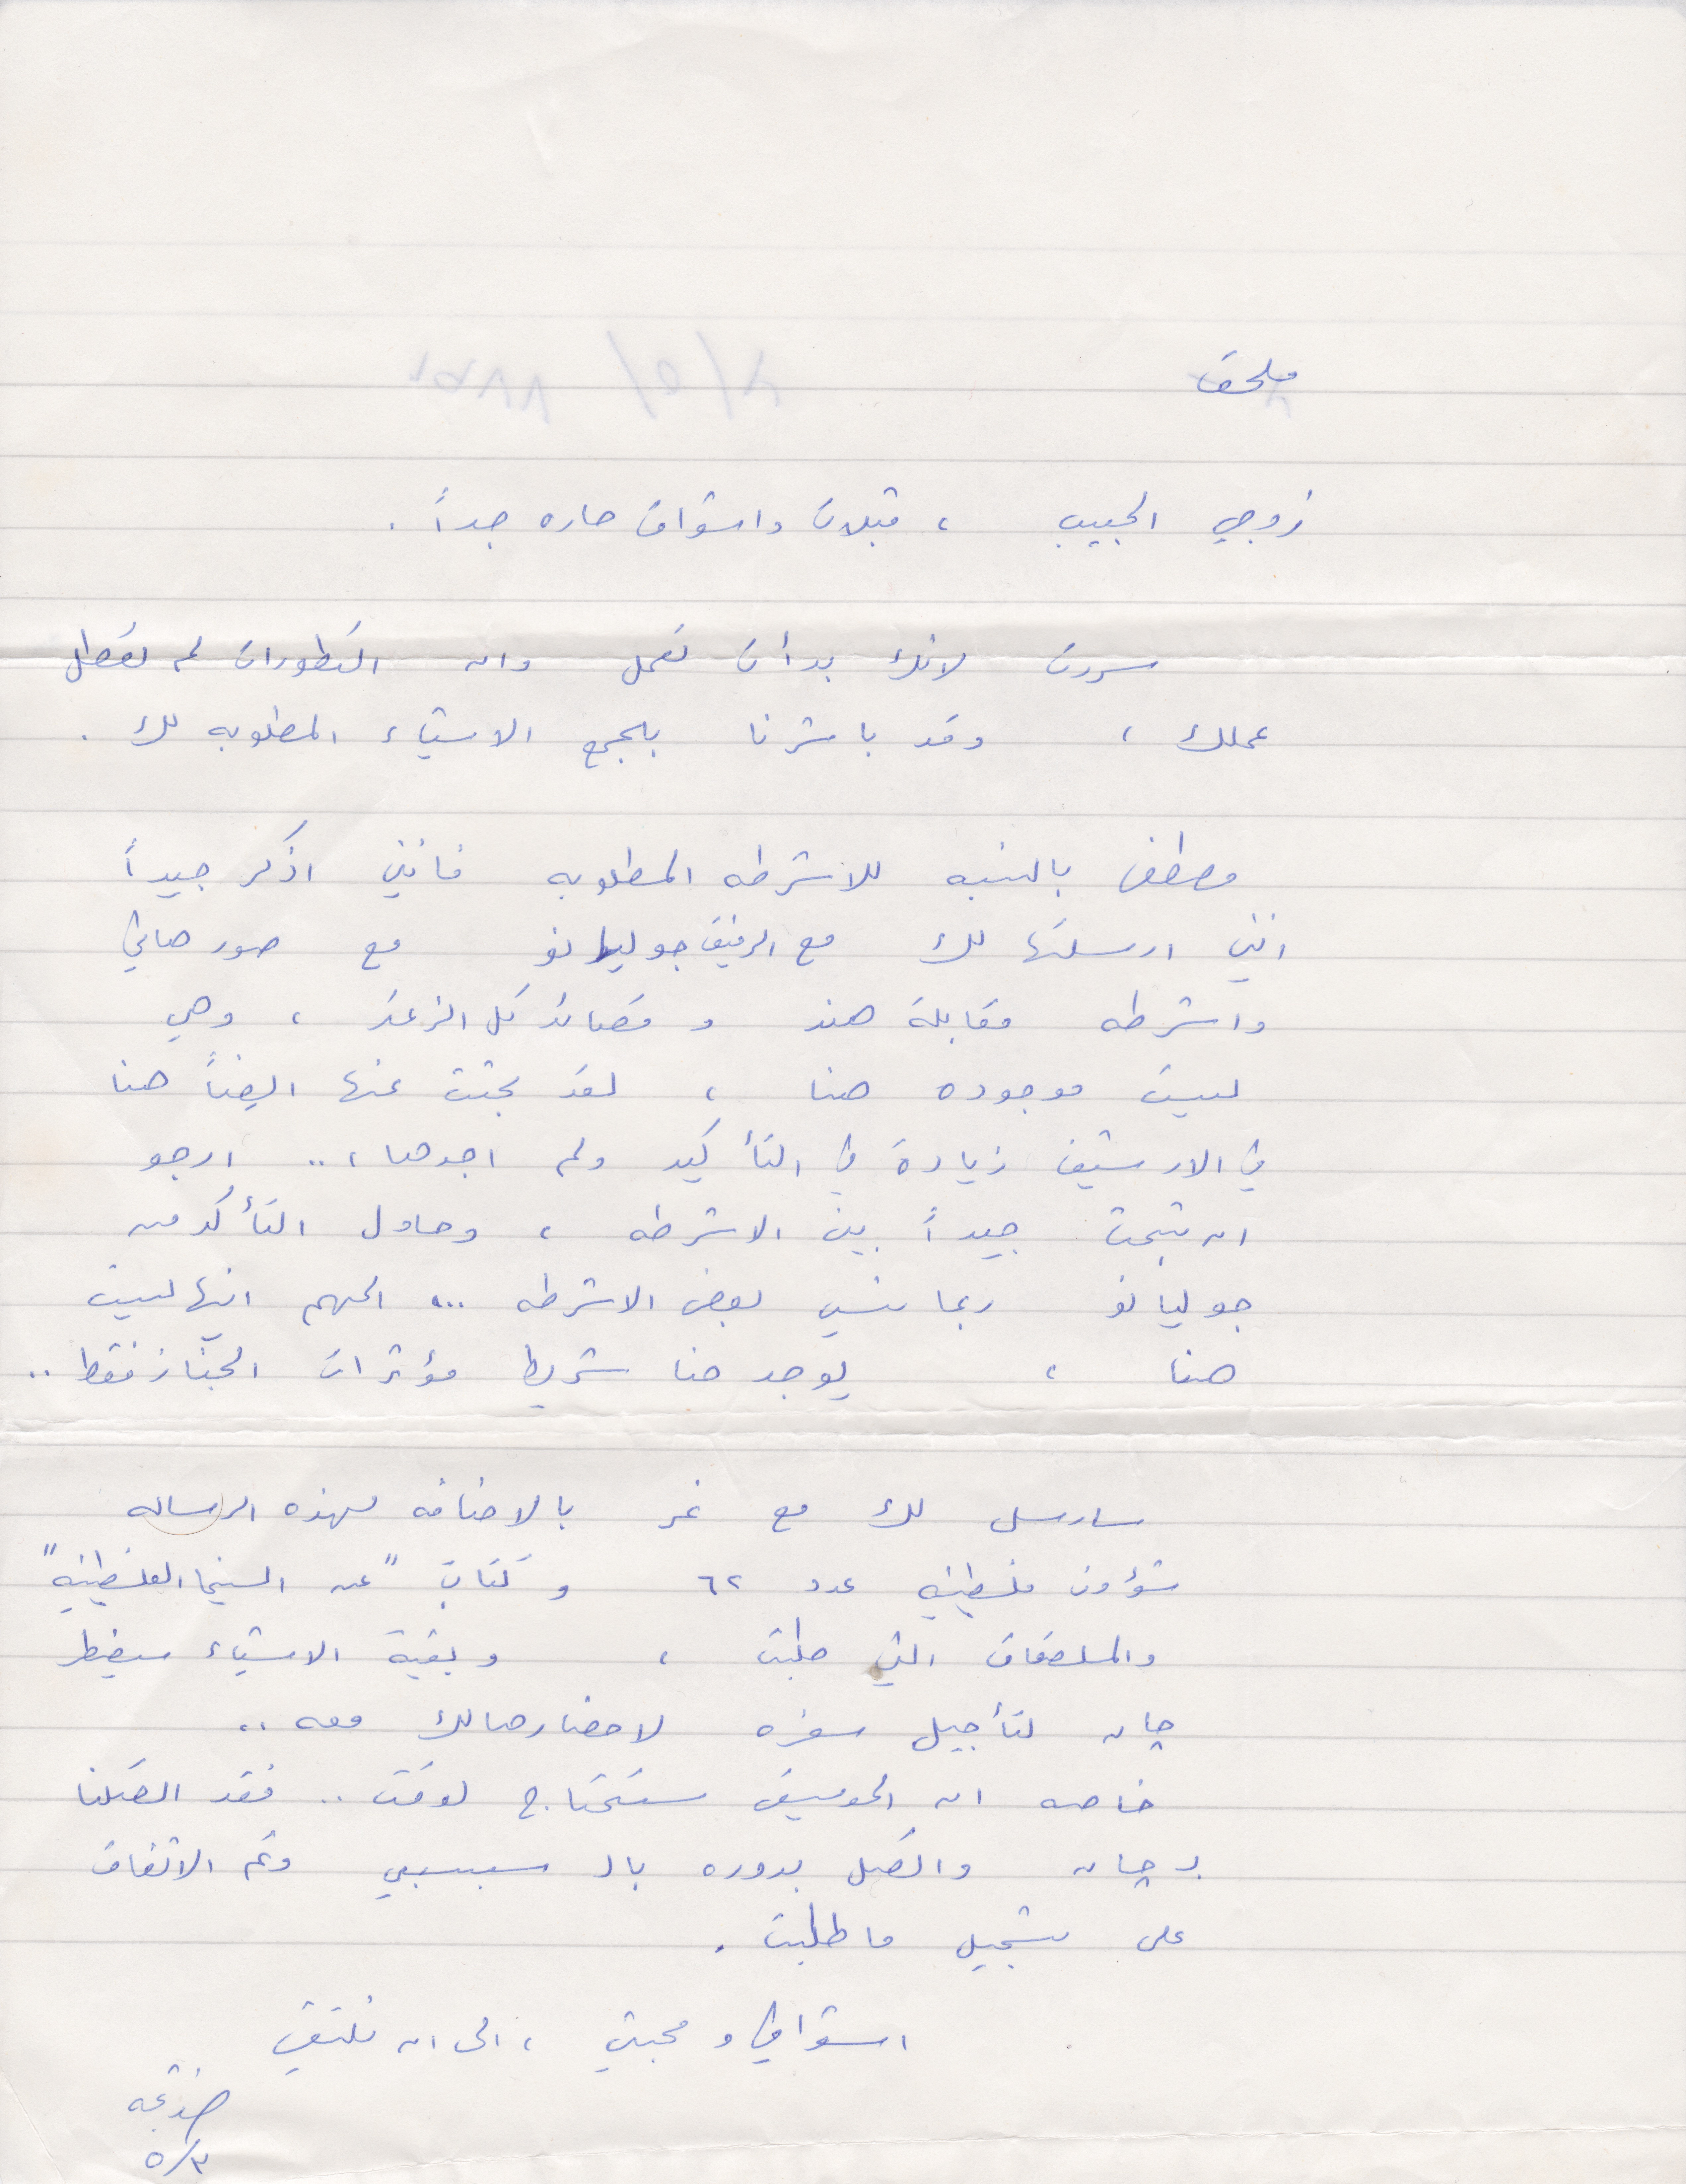 ملحق
زوجي الحبيب ، قبلات واشواق حاره جداً .
سررت لانك بدأت تعمل وان التطورات لم تعطل
عملك ، وقد باشرنا بجمع الاشياء المطلوبه لك .
مصطفى بالنسبه للاشرطه المطلوبه فانني اذكر جيداً
انني ارسلتها لك مع الرفيق جوليانو مع صور هاني
واشرطه مقابلة هند و قصائد تل الزعتر ، وهي
ليست موجوده هنا ، لقد بحثت عنها ايضاً هنا
في الارشيف زيادة في التأكيد ولم اجدها ،.. ارجو
ان تبحث جيداً بين الاشرطه ، وحاول التأكد من
جوليانو ربما نسي بعض الاشرطه ... المهم انها ليست
هنا ، يوجد هنا شريط مؤثرات الجناز فقط ..
سارسل لك مع نمر بالاضافه لهذه الرساله
شؤون فلسطينيه عدد ٦٢ و كتاب "عن السينما الفلسطينيه"
والملصقات التي طلبت ، وبقية الاشياء سيضطر
جان لتأجيل سفره لاحضارها لك معه ..
خاصه ان الموسيقى ستحتاج لوقت .. فقد اتصلنا
بـ جان واتصل بدوره بالـ سبسبي وتم الاتفاق
على تسجيل ما طلبت .
اشواقي و محبتي ، الى ان نلتقي
خديجه
٥/٣